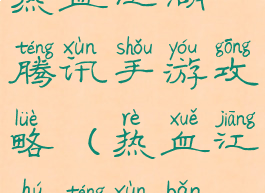 热血江湖
téng xùn shǒu yóu gōng
腾讯手游攻
lüè rè xuě jiāng
略（热血江
hú téng xùn bǎn